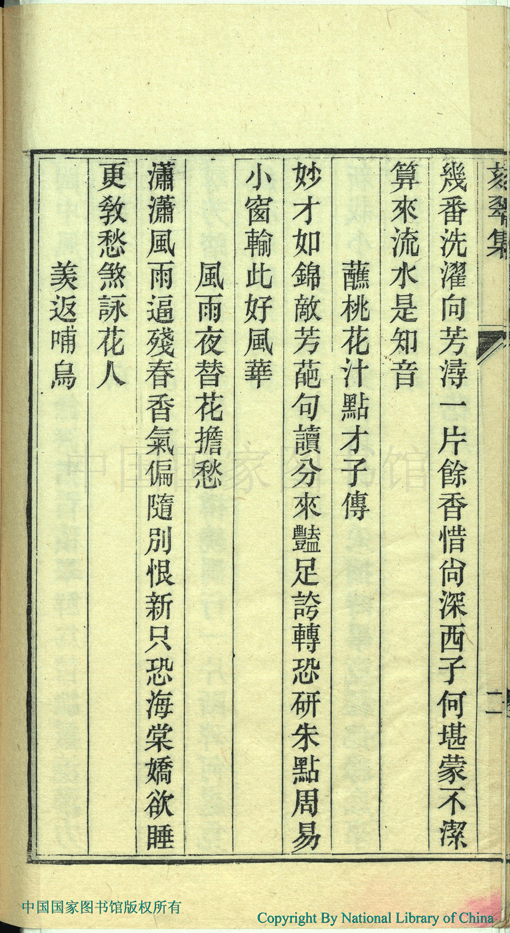 刻翠集
二
幾番洗濯向芳潯一片餘香惜尙深西子何堪蒙不潔
算來流水是知音
蘸桃花汁點才子傳
妙才如錦敵芳葩句讀分來豔足誇轉恐硏朱點周易
小窗輸此好風華
風雨夜替花擔愁
瀟瀟風雨逼殘春香氣偏隨別恨新只恐海棠嬌欲睡
更敎愁煞詠花人
羨返哺烏
中国国家图书馆
中国国家图书馆版权所有
Copyright By National Library of China